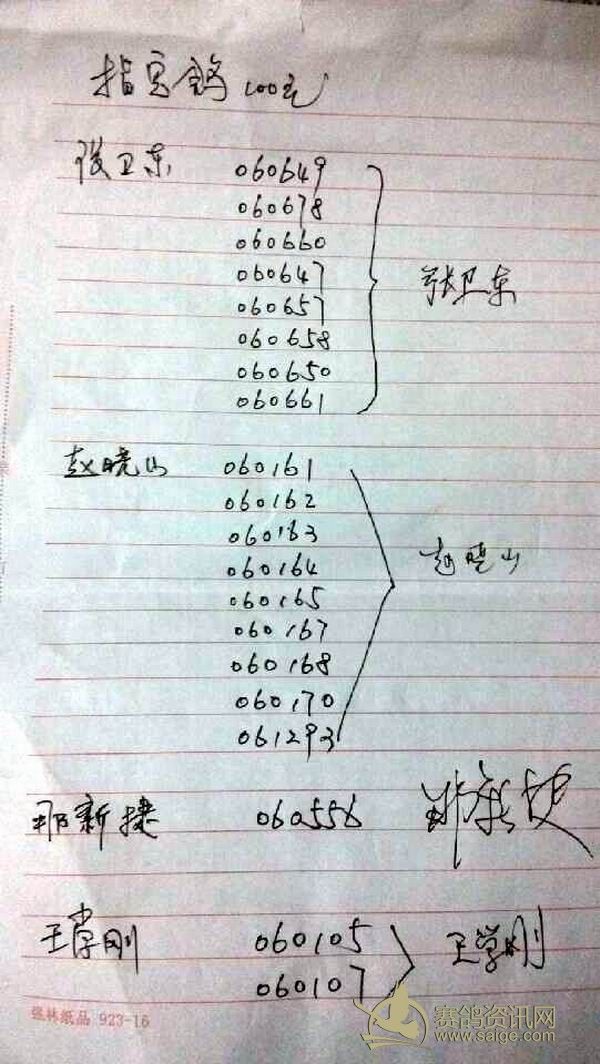 指定鸽 100元
张卫东 060649
060678
060660
060647 张卫东
060657
060658
060650
060661
赵晓山 060161
060162
060163
060164 赵晓山
060165
060167
060168
060170
061293
那新捷 060556 那新捷
王学刚 060105 王学刚
060107
强林纸品 923-16
赛鸽资讯网
www.saige.com